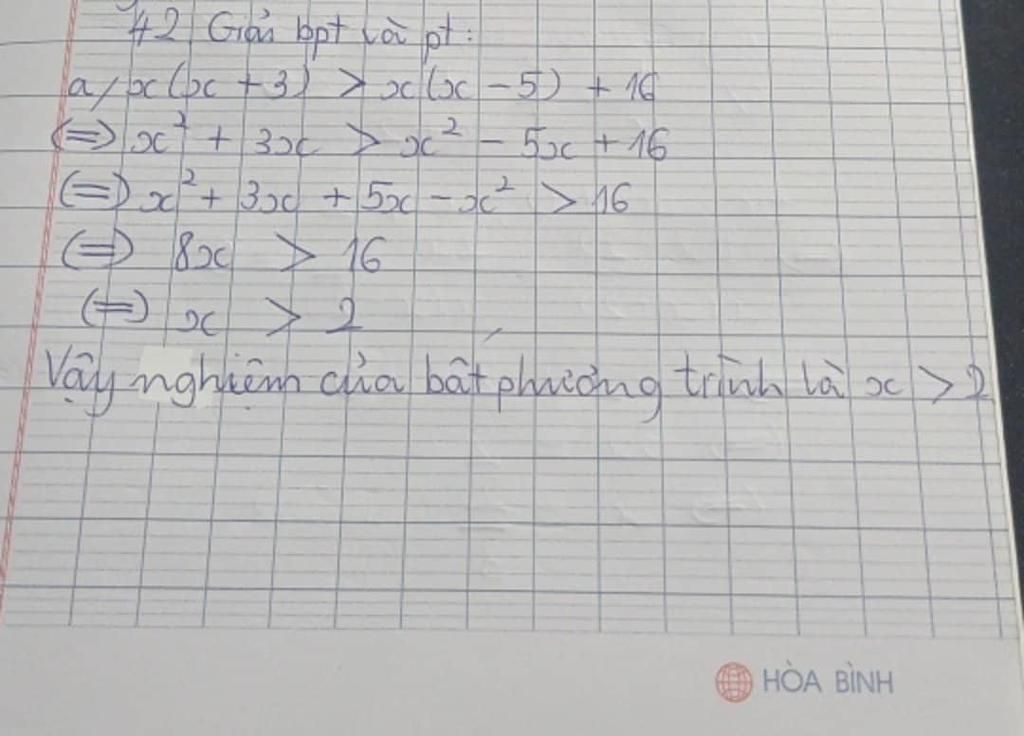 42 Giải bpt và pt:
a/ x(x + 3) > x(x - 5) + 16
(=) x² + 3x > x² - 5x + 16
(=) x² + 3x + 5x - x² > 16
(=) 8x > 16
(=) x > 2
Vậy nghiệm của bất phương trình là x > 2
HÒA BÌNH